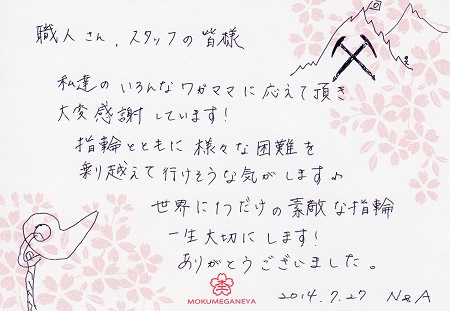 職人さん、スタッフの皆様
私達のいろんなワガママに応えて頂き
大変感謝しています!
指輪とともに様々な困難を
乗り越えて行けそうな気がします♪
世界に1つだけの素敵な指輪
一生大切にします!
ありがとうございました。
MOKUMEGANEYA
2014.7.27 N&A